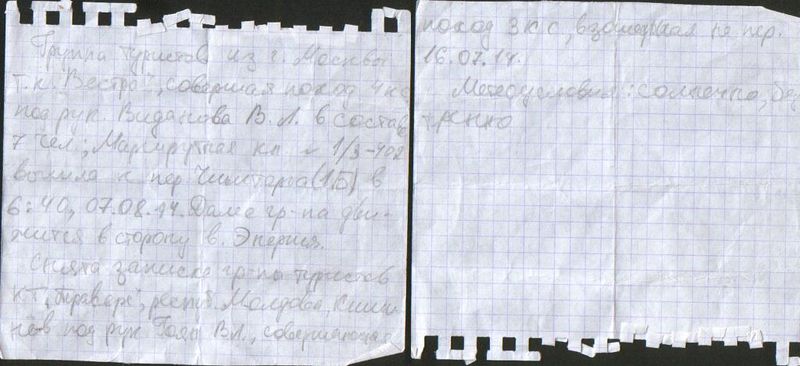 Группа туристов из г. Москвы
Т.к. "Вестра", совершая поход 4 кс
под рук. Виданова В.Л. в состав
7 чел.; Маршрутная кн № 1/3-402
вышла к пер Чимтарга (1Б) в
6:40, 07.08.14. Далее гр-па дви-
жится в сторону в. Энергия.
Снята записка гр-пы туристов
КТ "Траверс", респуб. Молдова, Киши-
нёв под рук Гояи В.Л., совершающая
поход 3 К С, взошедшая на пер.
16.07.14.
Метеоусловия: солнечно, без